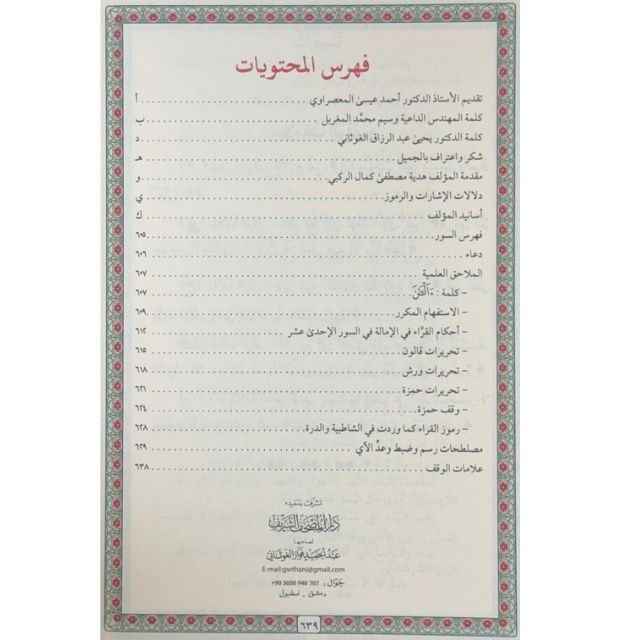 فهرس المحتويات
تقديم الأستاذ الدكتور أحمد عيسىٰ المعصراوي أ
كلمة المهندس الداعية وسيم محمَّد المغربل ب
كلمة الدكتور يحيىٰ عبد الرزاق الغوثاني د
شكر واعتراف بالجميل هـ
مقدمة المؤلف هدية مصطفىٰ كمال الركبي و
دلالات الإشارات والرموز ي
أسانيد المؤلف ك
فهرس السور ٦٠٥
دعاء ٦٠٦
الملاحق العلمية ٦٠٧
- كلمة : ءَآلْـَٰٔنَ ٦٠٧
- الاستفهام المكرر ٦٠٩
- أحكام القرَّاء في الإمالة في السور الإحدىٰ عشر ٦١٢
- تحريرات قالون ٦١٥
- تحريرات ورش ٦١٨
- تحريرات حمزة ٦٢١
- وقف حمزة ٦٢٤
- رموز القراء كما وردت في الشاطبية والدرة ٦٢٨
مصطلحات رسم وضبط وعدّ الآي ٦٢٩
علامات الوقف ٦٣٨
تشرَّفت بتنفيذه
دار المصحف الشريف
لصاحبها
عبد الحميد فواز الغوثاني
E-mail:gwthani@gmail.com
جوّال : +90 5050 940 707
دمشق - اسطنبول
٦٣٩